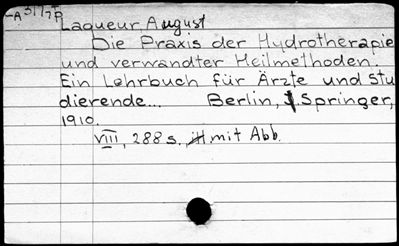 Laqueur August
Die Praxis der Hydrotherapie
und verwandter Heilmethoden.
Ein Lehrbuch für Ärzte und Stu
dierende... Berlin, J. Springer,
1910.
VIII, 288 s. mit Abb.